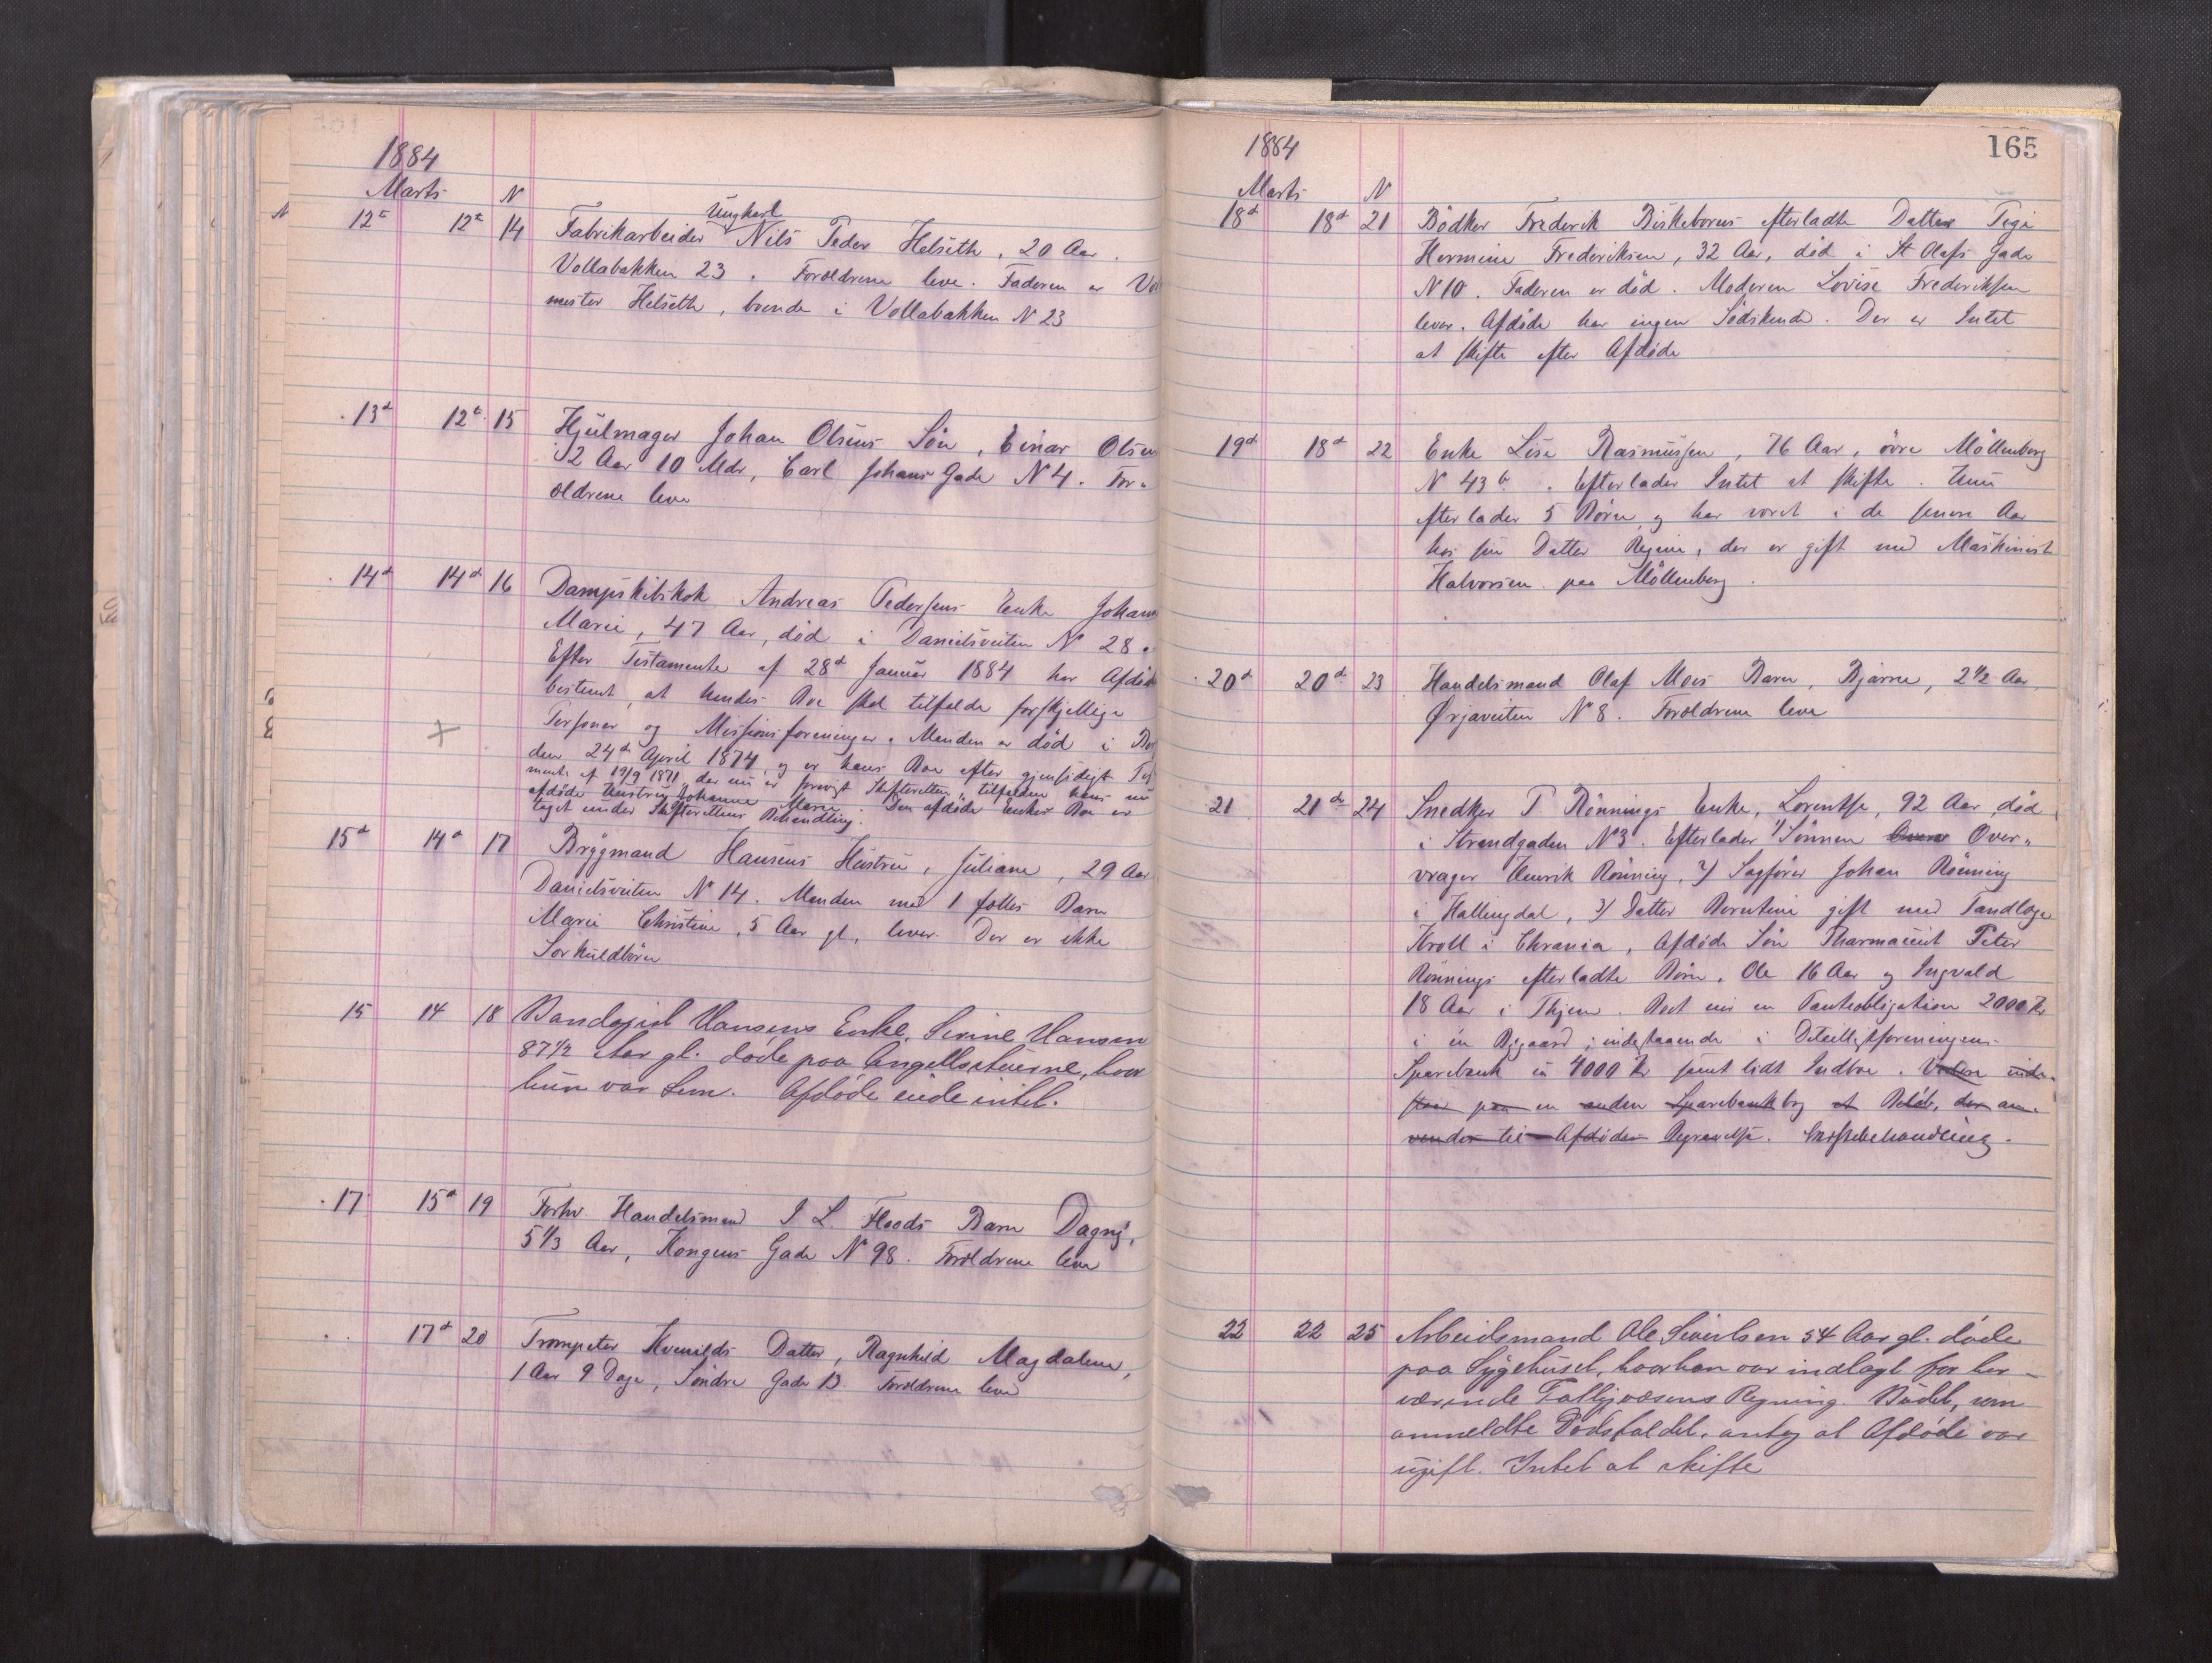 1884
Marts N
12te 12te 14 Fabrikarbeider Ungkarl Nils Peder Helseth, 20 Aar.
Vollabakken 23. Forældrene leve. Faderen er
mester Helseth, boende i Vollabakken N 23
13de 12te 15 Hjulmager Johan Olsens Søn, Einar Olsen
2 Aar 10 Mdr, Carl Johans Gade N 4. For-
ældrene leve
14de 14de 16 Dampskibskok Andreas Pedersens Enke Johanne
Marie, 47 Aar, død i Danielsveiten N 28.
Efter Testamente af 28de Januar 1884 har Afdøde
bestemt, at hendes Boe skal tilfalde forskjellige
Personer og Missionsforeninger. Manden er død i
den 24de April 1874, og er hans Boe efter gjensidigt Testa-
mente af 19/9 1871, der nu er forevist Skifteretten, tilfalden hans nu
afdøde Hustru Johanne Marie. Den afdøde Enkes Boe er
taget under Skifterettens Behandling.
15de 14de 17 Bryggmand Hansens Hustru, Juliane, 29 Aar
Danielsveiten N 14. Manden med 1 fælles Barn
Marie Christine, 5 Aar gl., lever. Der er ikke
Særkuldbørn
15 14 18 Bandagist Hansens Enke, Serine Hansen
87 1/2 Aar gl. døde paa Angellstuerne, hvor
hun var Lem. Afdøde eiede intet.
17 15de 19 Forhv Handelsmand I L. Floods Barn Dagny,
5 1/3 Aar, Kongens Gade N 98. Forældrene leve
17de 20 Trompeter Kvenilds Datter, Ragnhild Magdalena,
1 Aar 9 Dage, Søndre Gade 13. Forældrene leve
165
1884
Marts N
18de 18de 21 Bødker Frederik Biskeborns efterladte Datter
Hermine Frederiksen, 32 Aar, død i St Olafs Gade
N 10. Faderen er død. Moderen Lovise Frederiksen
lever. Afdøde har ingen Sødskende. Der er Intet
at skifte efter Afdøde
19de 18de 22 Enke Lise Rasmussen, 76 Aar, øvre Møllenberg
N 43 b. Efterlader Intet at skifte. Hun
efterlader 5 Børn, og har været i de senere Aar
hos sin Datter Regine, der er gift med Maskinist
Halvorsen paa Møllenberg.
20de 20de 23 Handelsmand Olaf Moes Barn, Bjarne, 2 1/2 Aar,
Ørjaveiten N 8. Forældrene leve
21 21de 24 Snedker P Rønnings Enke, Lorentse, 92 Aar, død
i Strandgaden N 3. Efterlader 1) Sønnen Over-
vrager Henrik Rønning, 2) Sagfører Johan Rønning
i Hallingdal, 3) Datter Berntine gift med Tandlæge
Kroll i Chrania, Afdøde Søn Pharmaceut Peter
Rønnings efterladte Børn, Ole 16 Aar og Ingvald
18 Aar i Thjem. Boet eier en Panteobligation 2000 Kr
i en Bygaard, indestaaende i Detaillistforeningens
Sparebank ca 4000 Kr samt lidt Indboe. Videre inde-
staar paa en anden Sparebankbog et Beløb, der an-
vendes til Afdødes Begravelse. Skiftebehandling.
22 22 25 Arbeidsmand Ole Sivertsen 54 Aar gl. døde
paa Sygehuset, hvor han var indlagt for her-
værende Fattigvæsens Regning. Budet, som
anmeldte Dødsfaldet, antog at Afdøde var
ugift. Intet at skifte